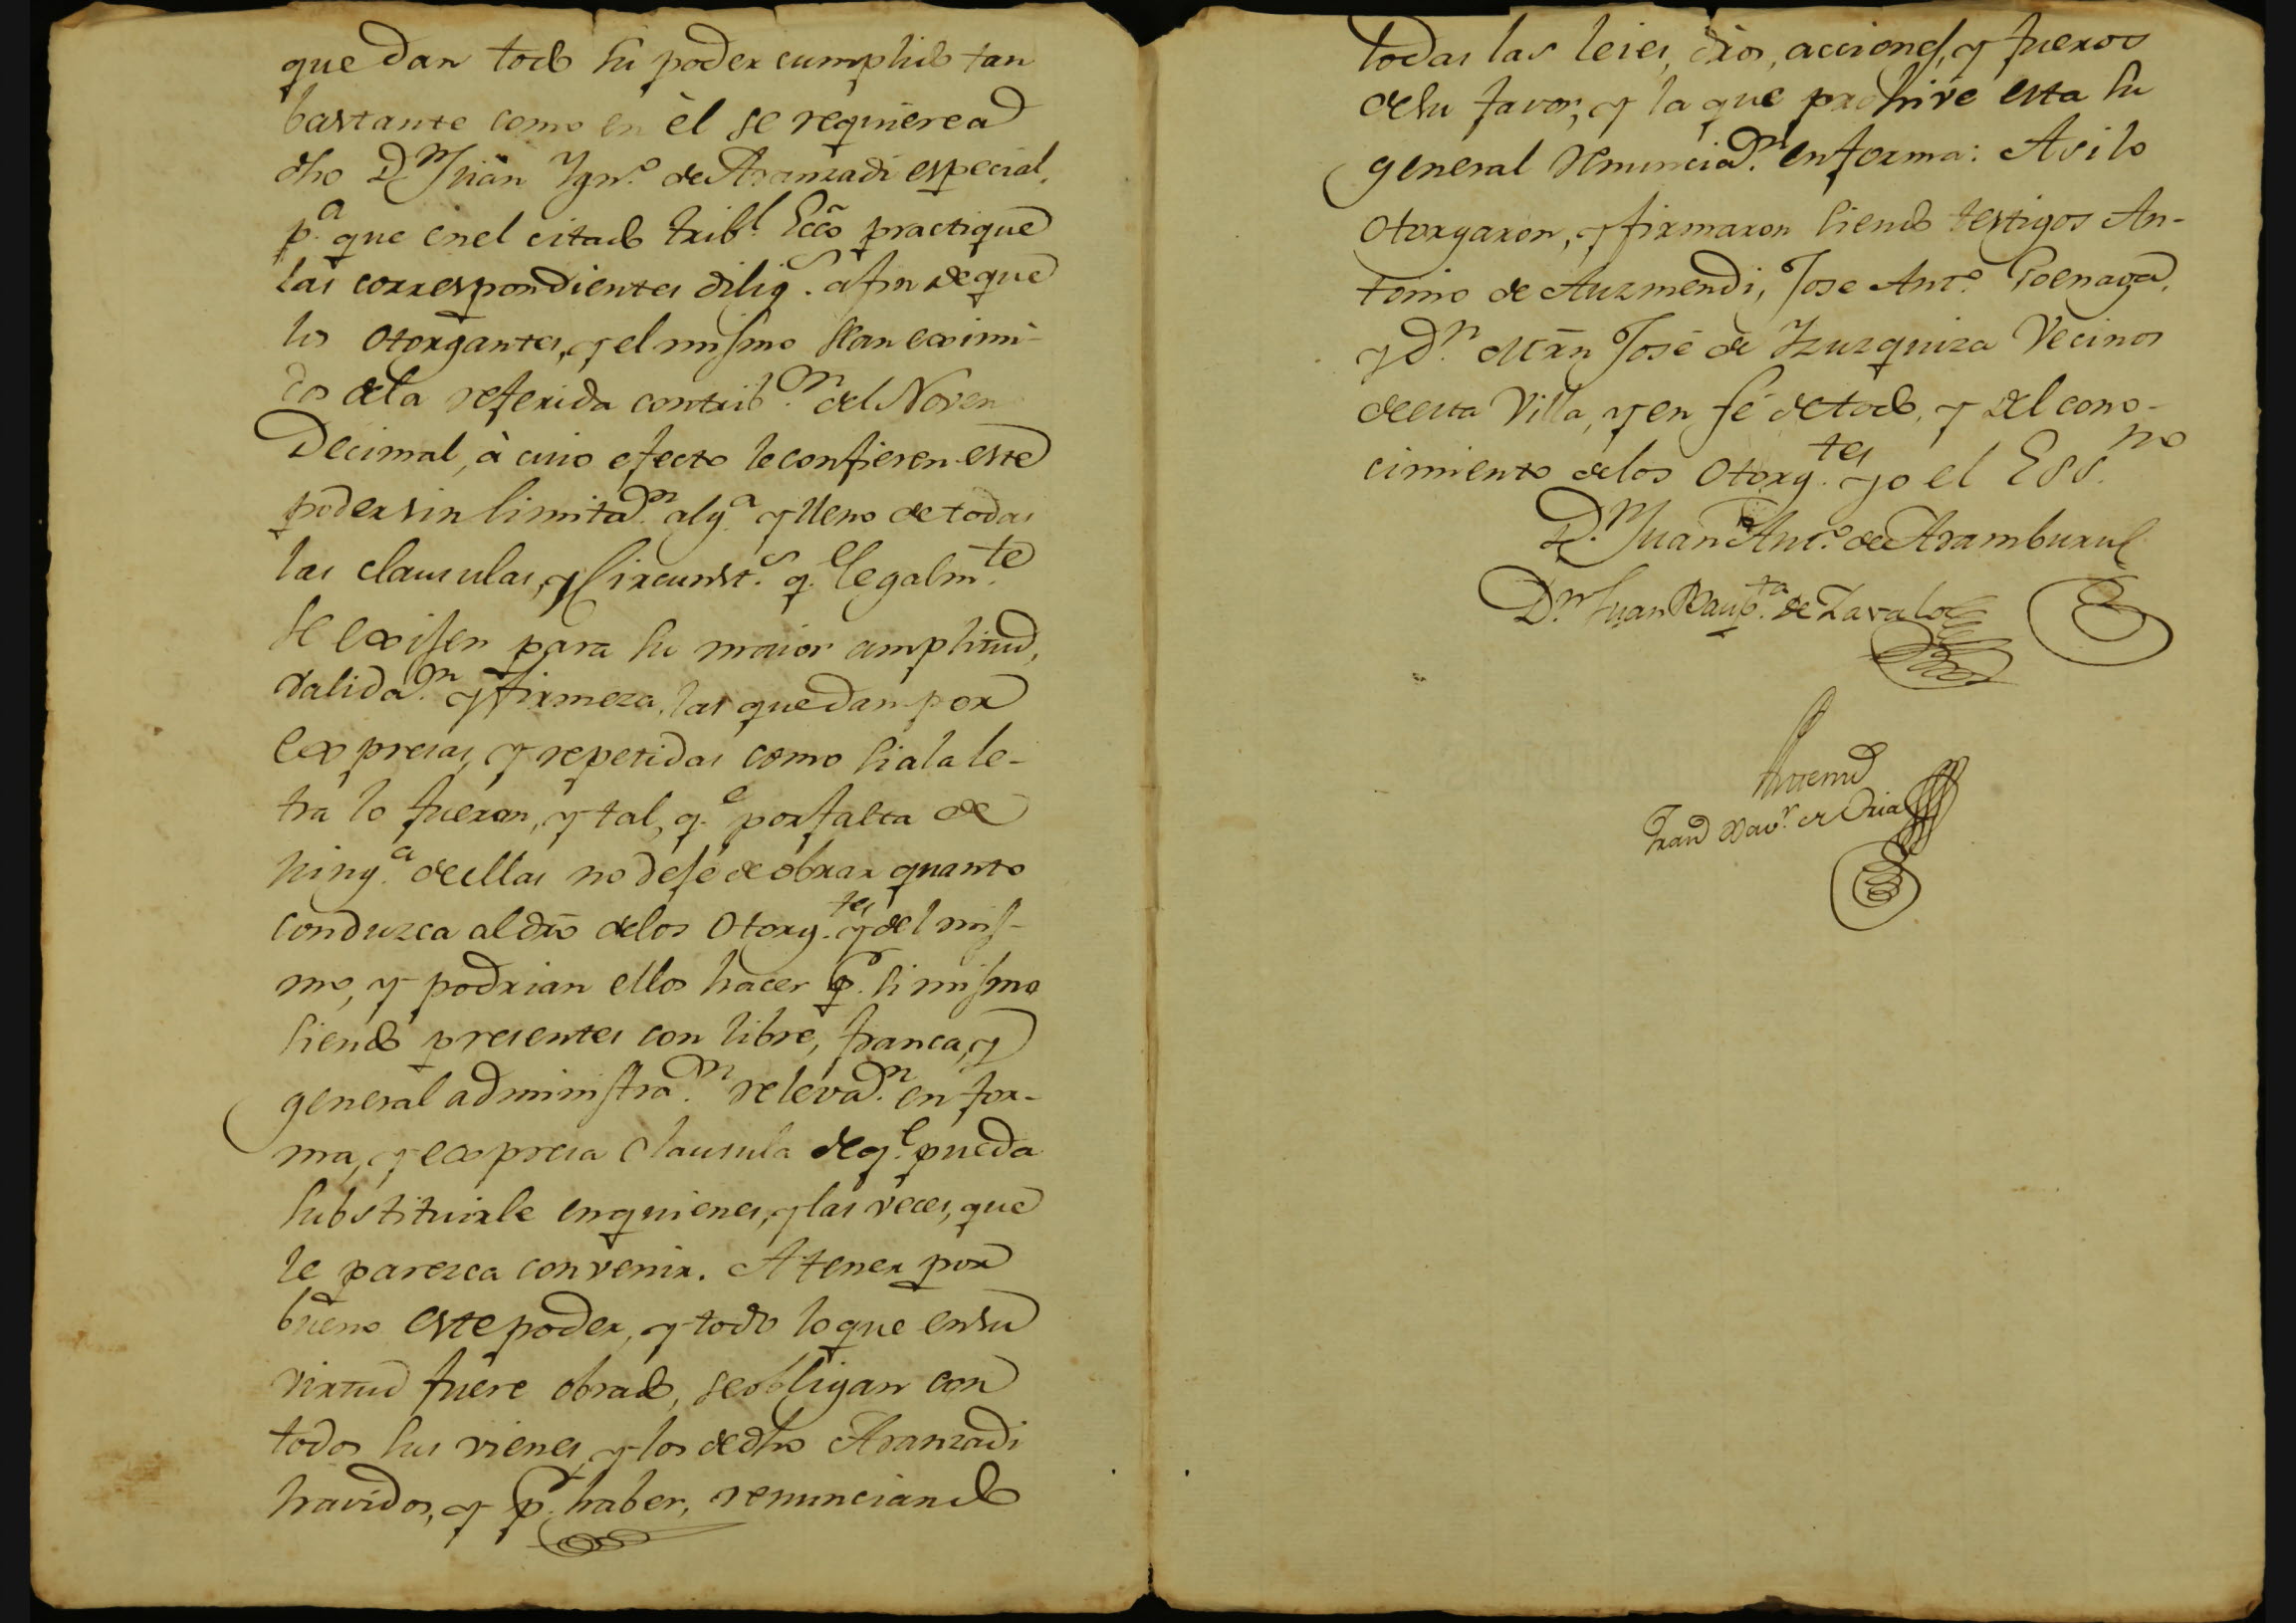 que dan todo su poder cumplido tan
bastante como en èl se requiere a
dho Dn Juan Ygn.o de Aranzadi especial,
p.a que en el citado trib.l Ecco practique
las correspondientes dilig.s afin de que
los Otorgantes, y el mismo sean eximi-
dos dela referida contrib.on del Noven
Decimal, à cuio efecto le confieren este
poder sin limitaz.n alg.a y lleno de todas
las clausulas, y Circunst.s q.e legalm.te
se exijen para su maior amplitud,
validaz.n y firmeza, las que dan por
expresas, y repetidas como si a la le-
tra lo fueran, y tal, q.e por falta de
ning.a de ellas no deje de obrar quanto
conduzca al dro delos Otorg.tes y del mis-
mo, y podrian ellos hacer p.r si mismo
siendo presentes con libre, franca, y
general administraz.n relevaz.n en for-
ma, y expresa clausula de q.e pueda
substituirle en quienes, y las veces, que
le parezca convenir. A tener por
bueno este poder, y todo lo que en su
virtud fuere obrado, se obligan con
todos sus vienes, y los de dho Aranzadi
havidos, y p.r haber, renunciando
todas las leies, dros, acciones, y fueros
de su favor, y la que prohive esta su
general renunciaz.n en forma: Asi lo
Otorgaron, y firmaron siendo testigos An-
tonio de Auzmendi, Jose Ant.o Goenaga,
y D.n Mrn José de Yzuzquiza Vecinos
de esta Villa, y en fé de todo, y del cono-
cimiento delos Otorg.tes yo el Ess.no
D.n Juan Ant.o de Aramburu
D.n Juan Baup.ta de Zavalo
Antemi
Fran.co Xav.r de Oria